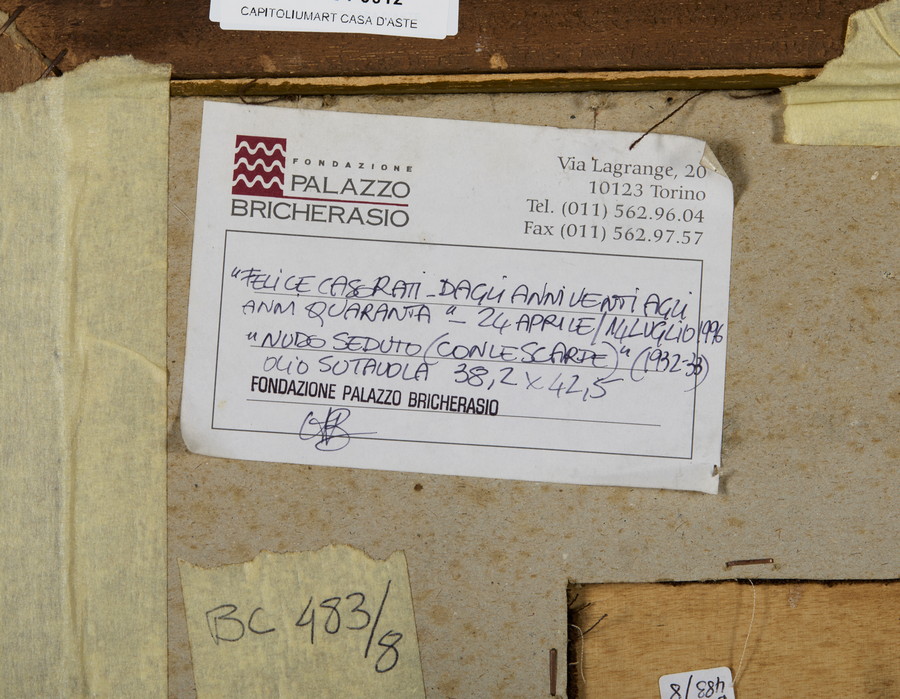 CAPITOLIUMART CASA D'ASTE
FONDAZIONE
PALAZZO
BRICHERASIO
Via Lagrange, 20
10123 Torino
Tel. (011) 562.96.04
Fax (011) 562.97.57
"FELICE CASORATI - DAGLI ANNI VENTI AGLI
ANNI QUARANTA" - 24 APRILE / 14 LUGLIO 1996
"NUDO SEDUTO (CON LE SCARPE)" (1932-33)
OLIO SU TAVOLA 38,2 x 42,5
FONDAZIONE PALAZZO BRICHERASIO
BC 483/8
483/8